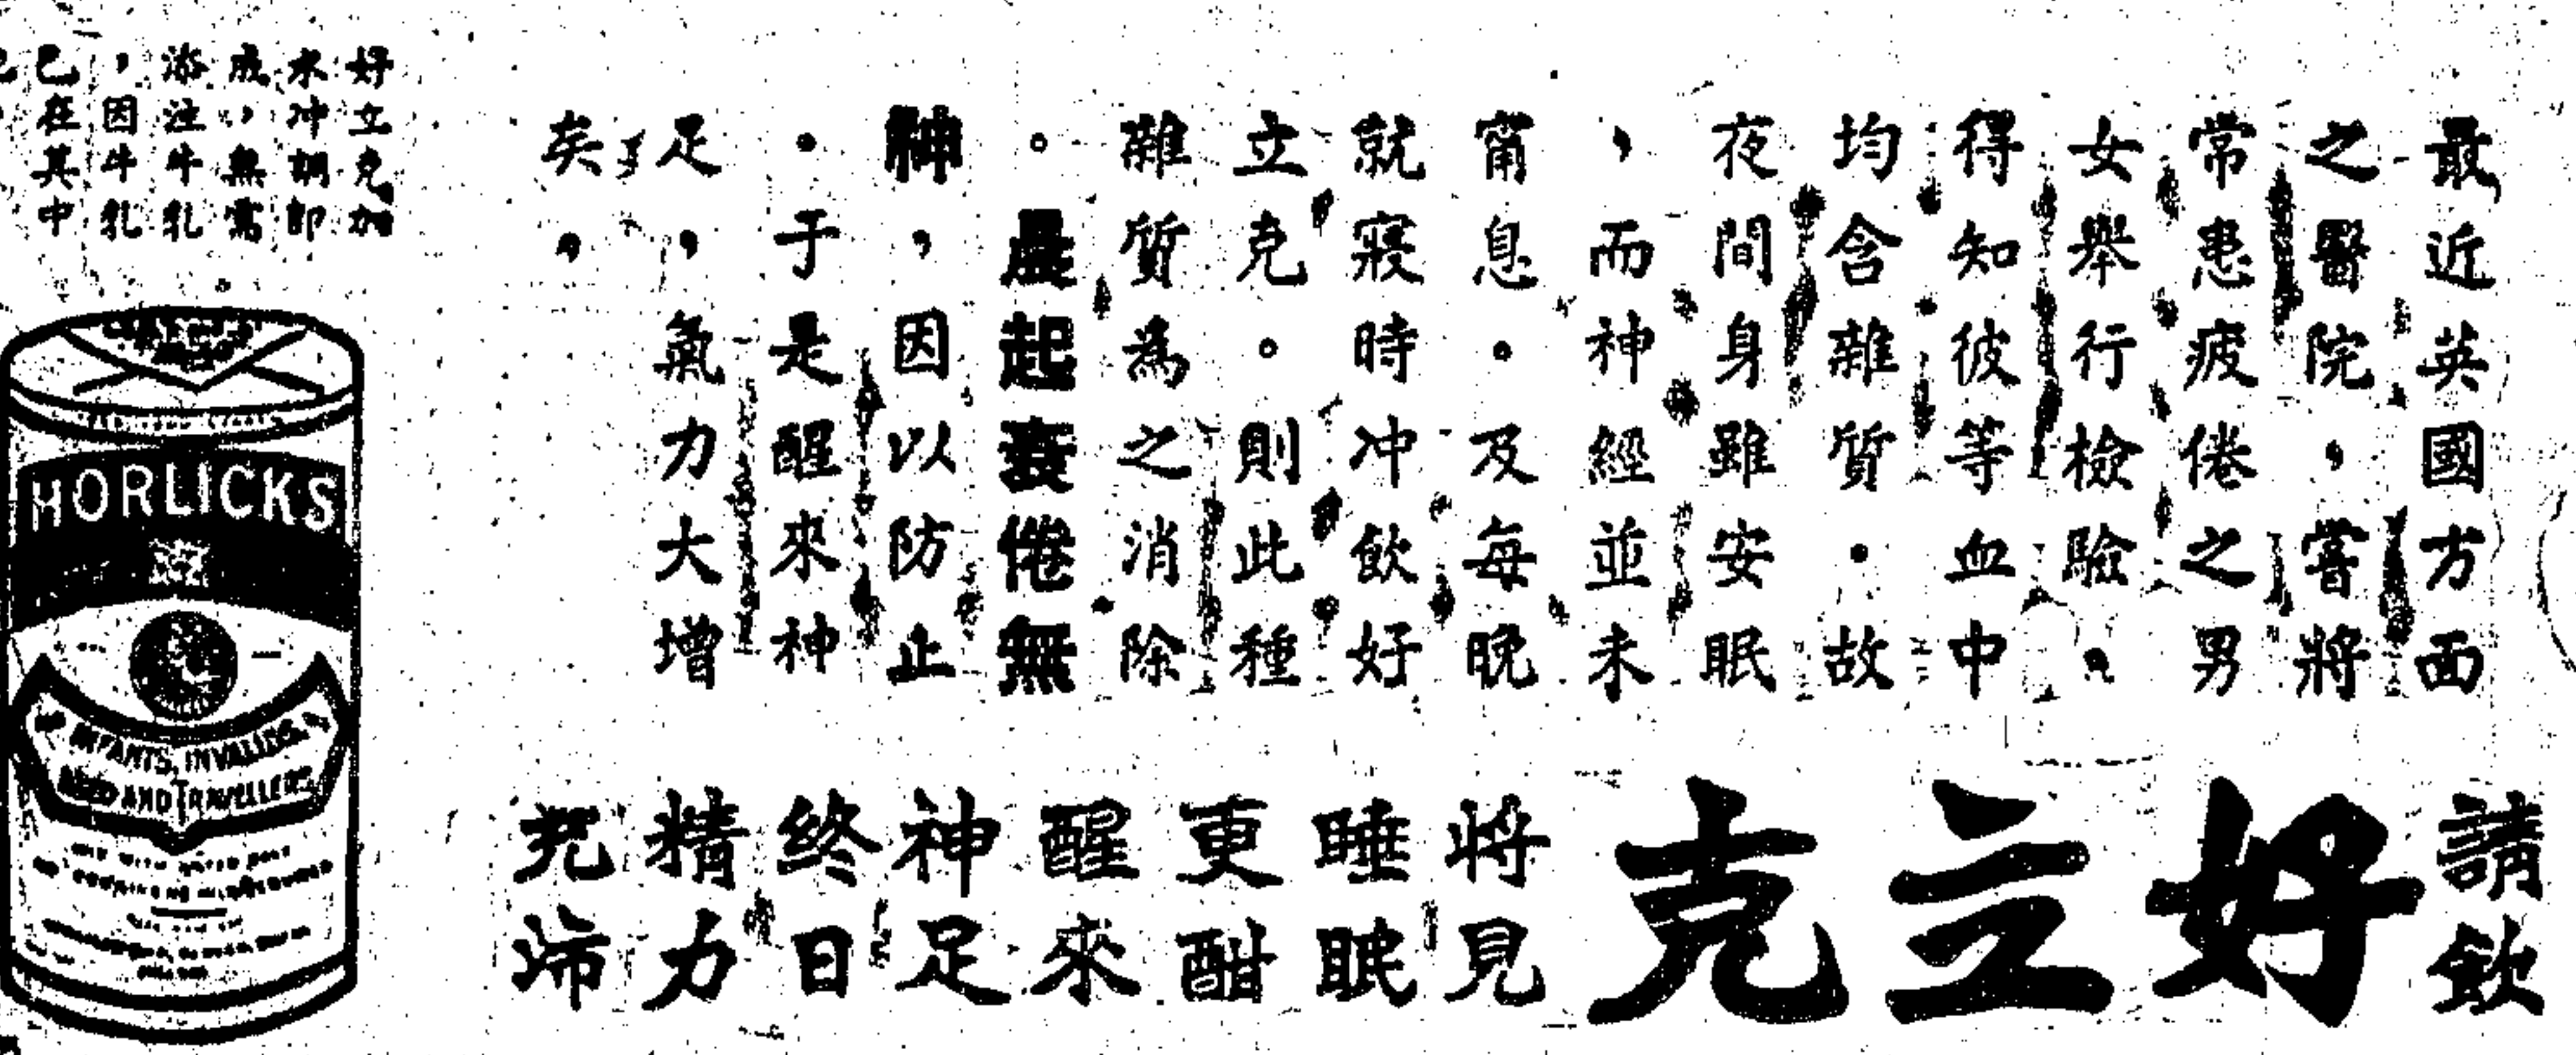 最近英國方面
之醫院，嘗將
常患疲倦之男
女舉行檢驗。
得知彼等血中
均含雜質。故
夜間身雖安眠
，而神經並未
甯息。及每晚
就寢時冲飲好
立克。則此種
雜質爲之消除
。晨起衰倦無
神，因以防止
。于是醒來神
足，氣力大增
矣，
請飲
好立克
將見
睡眠
更酣
醒來
神足
終日
精力
充沛
好立克加
水冲調即
成，無需
添注牛乳
，因牛乳
已在其中
HORLICKS
INFANTS, INVALIDS,
AGED AND TRAVELLERS